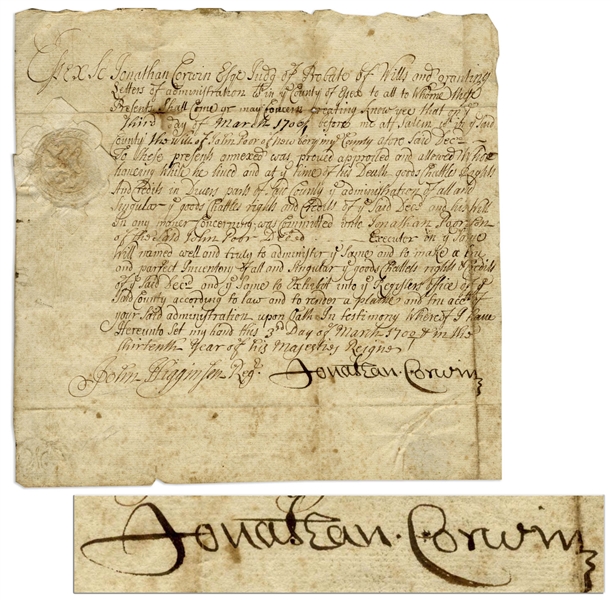 Essex Sc Jonathan Corwin Esqr Judg of Probate of Wills and granting
Letters of administration &c in ye County of Essex to all to Whome these
Presents Shall Come or may Concern Greating Know yee that on ye
Third day of March 170¾ before me att Salem in ye said
County the Will of John Poor of Newbery in ye County afore Said Decd
To these presents annexed was proved approved and allowed Who
haveing while he lived and at ye time of his Death goods Chattles Rights
And Credits in Divers parts of County ye administration of all and
Singular ye goods Chattles rights and Credits of ye Said Decd and his Will
in any maner Concerning was Committed unto Jonathan Poor Son
of the said John Poor Decd Executer in ye Same
Will named well and truly to administer ye Same and to make a true
and parfect Inventory of all and Singular ye goods Chattels rights & Credits
of ye Said Decd and ye Same to Exhibitt into ye Registers office of ye
Said County according to law and to render a plaine and true acct of
your Said administration upon Oath In testimony Whereof I have
Hereunto Set my hand this 3d Day of March 170¾ in the
Year of his Majesties Reigne
John Higginson Regr Jonathan Corwin
Jonathan Corwin